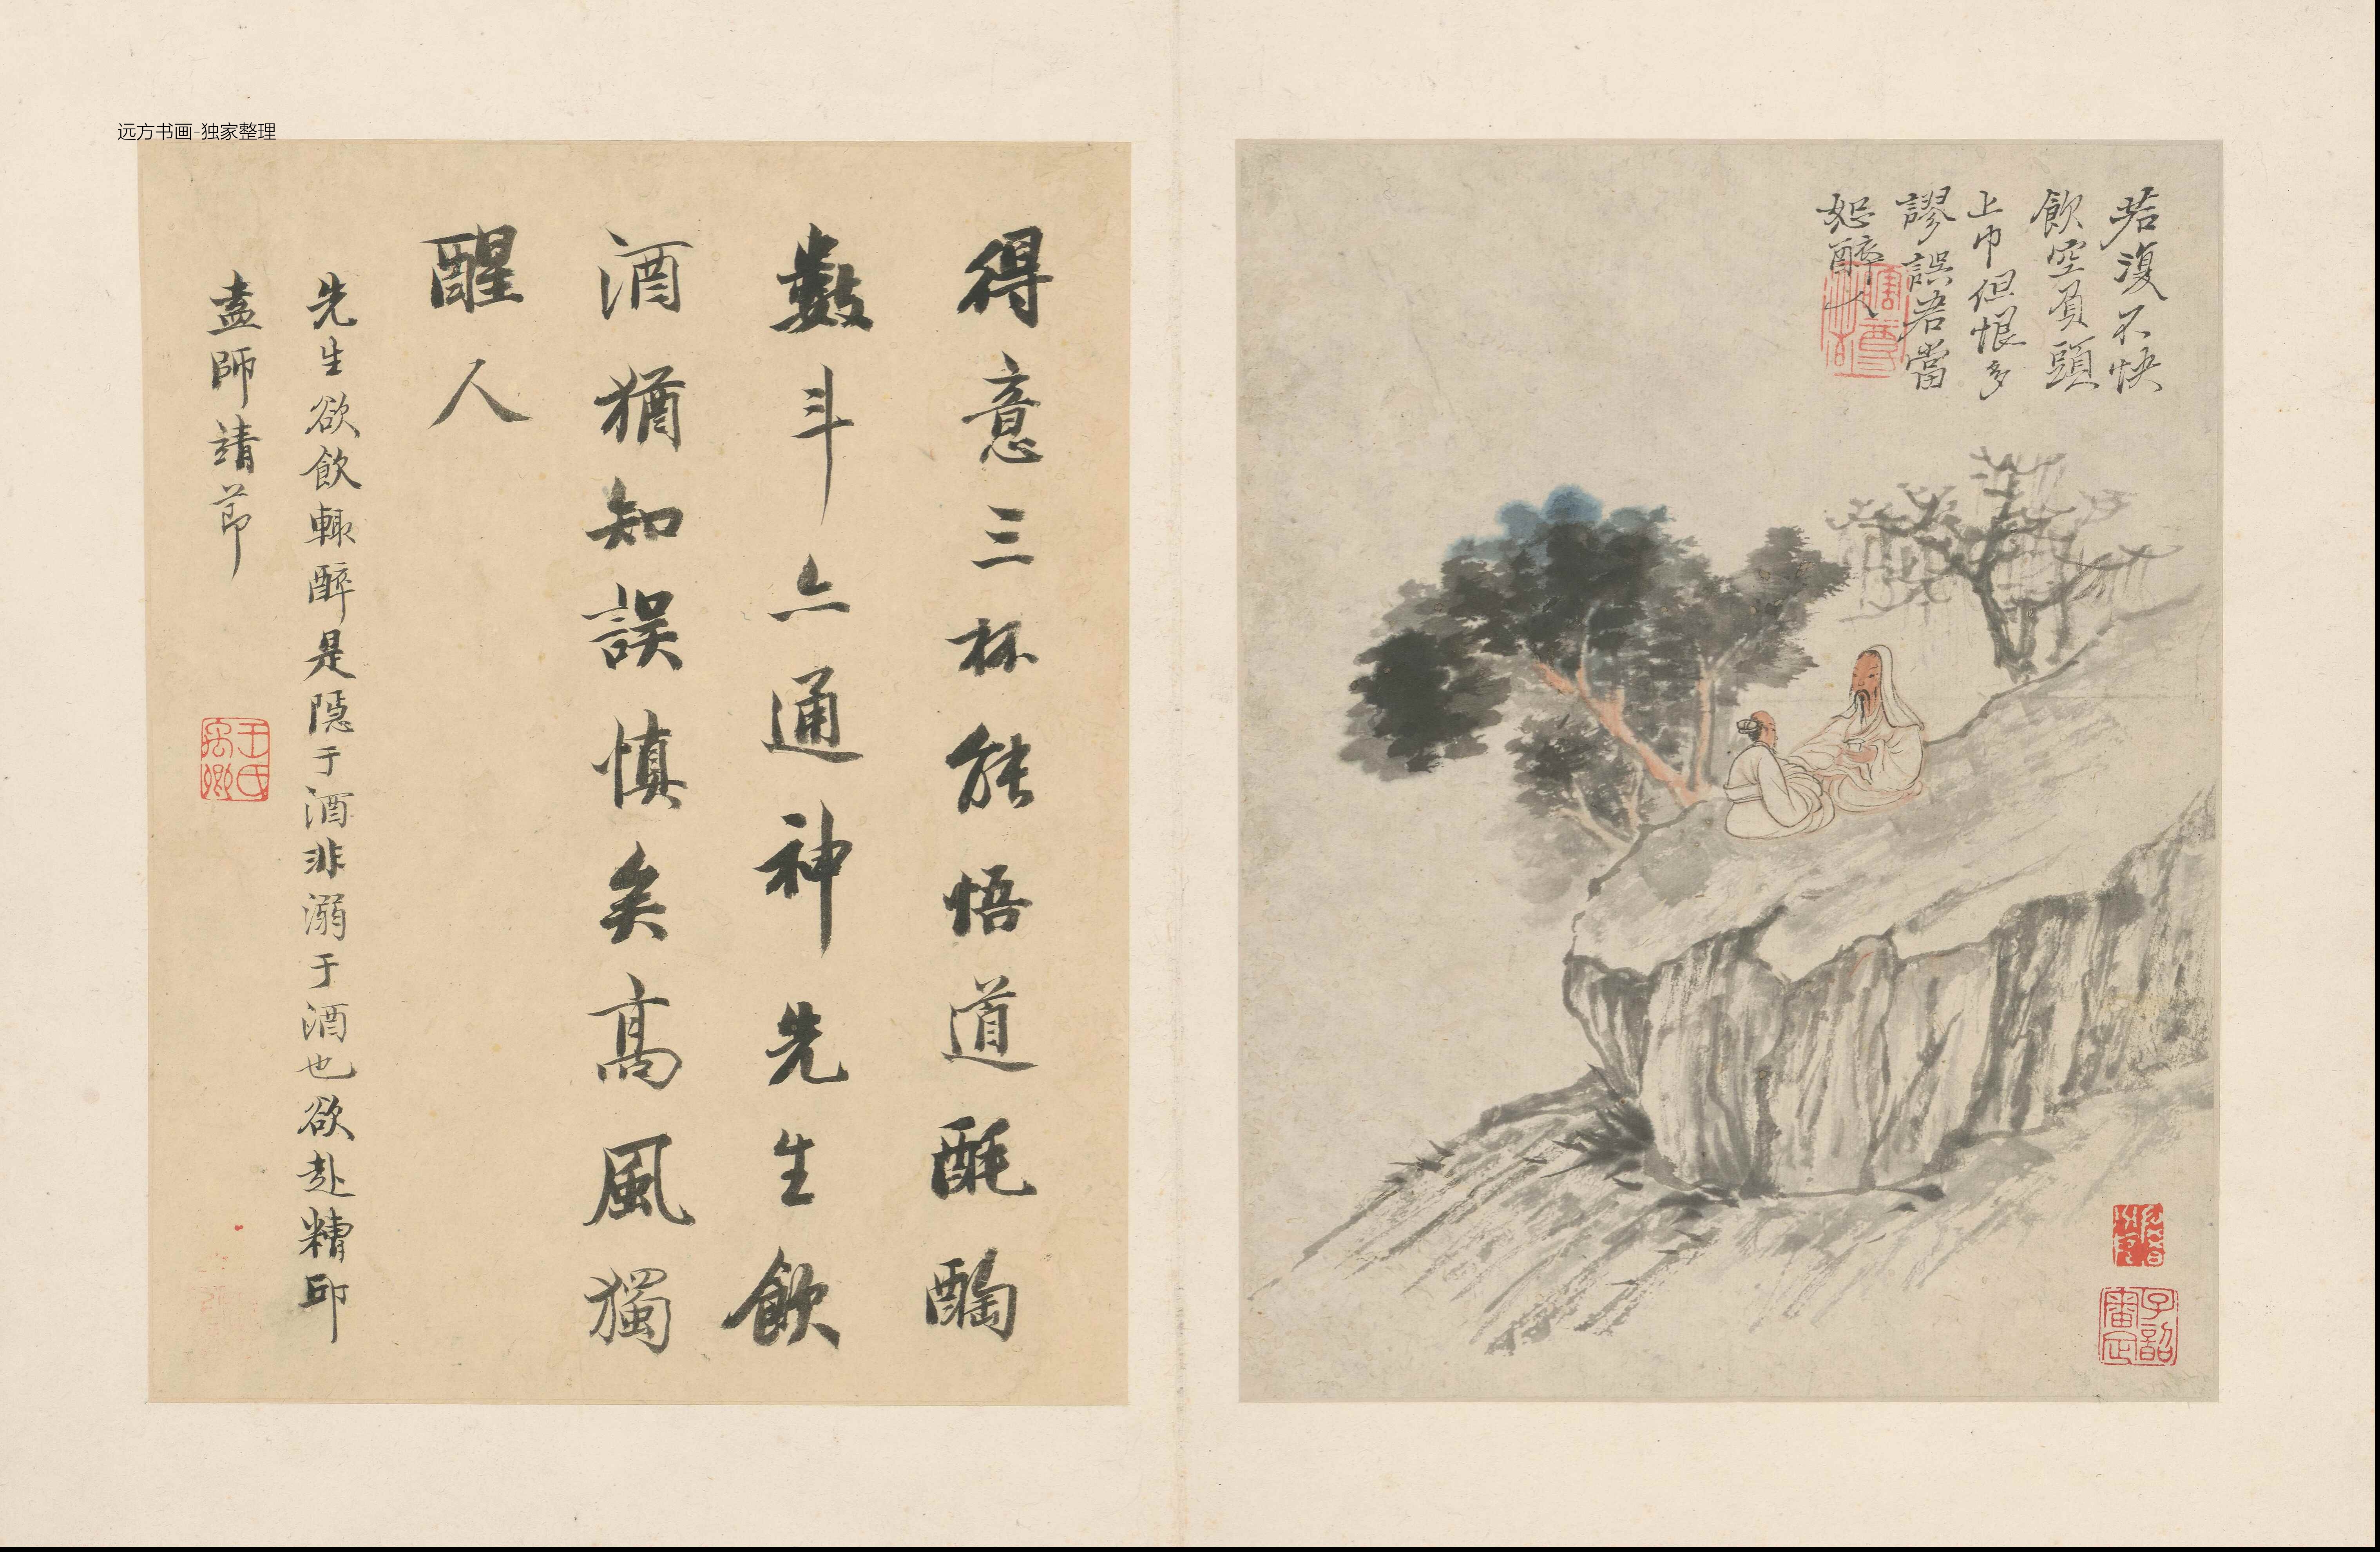 远方书画-独家整理
若復不快
飲空負頭
上巾但恨多
謬誤君當
恕醉人
得意三杯能悟道酕醄
數斗亦通神先生飲
酒猶知誤慎矣高風獨
醒人
先生欲飲輒醉是隱于酒非溺于酒也欲赴糟邱
盍師靖節
王氏